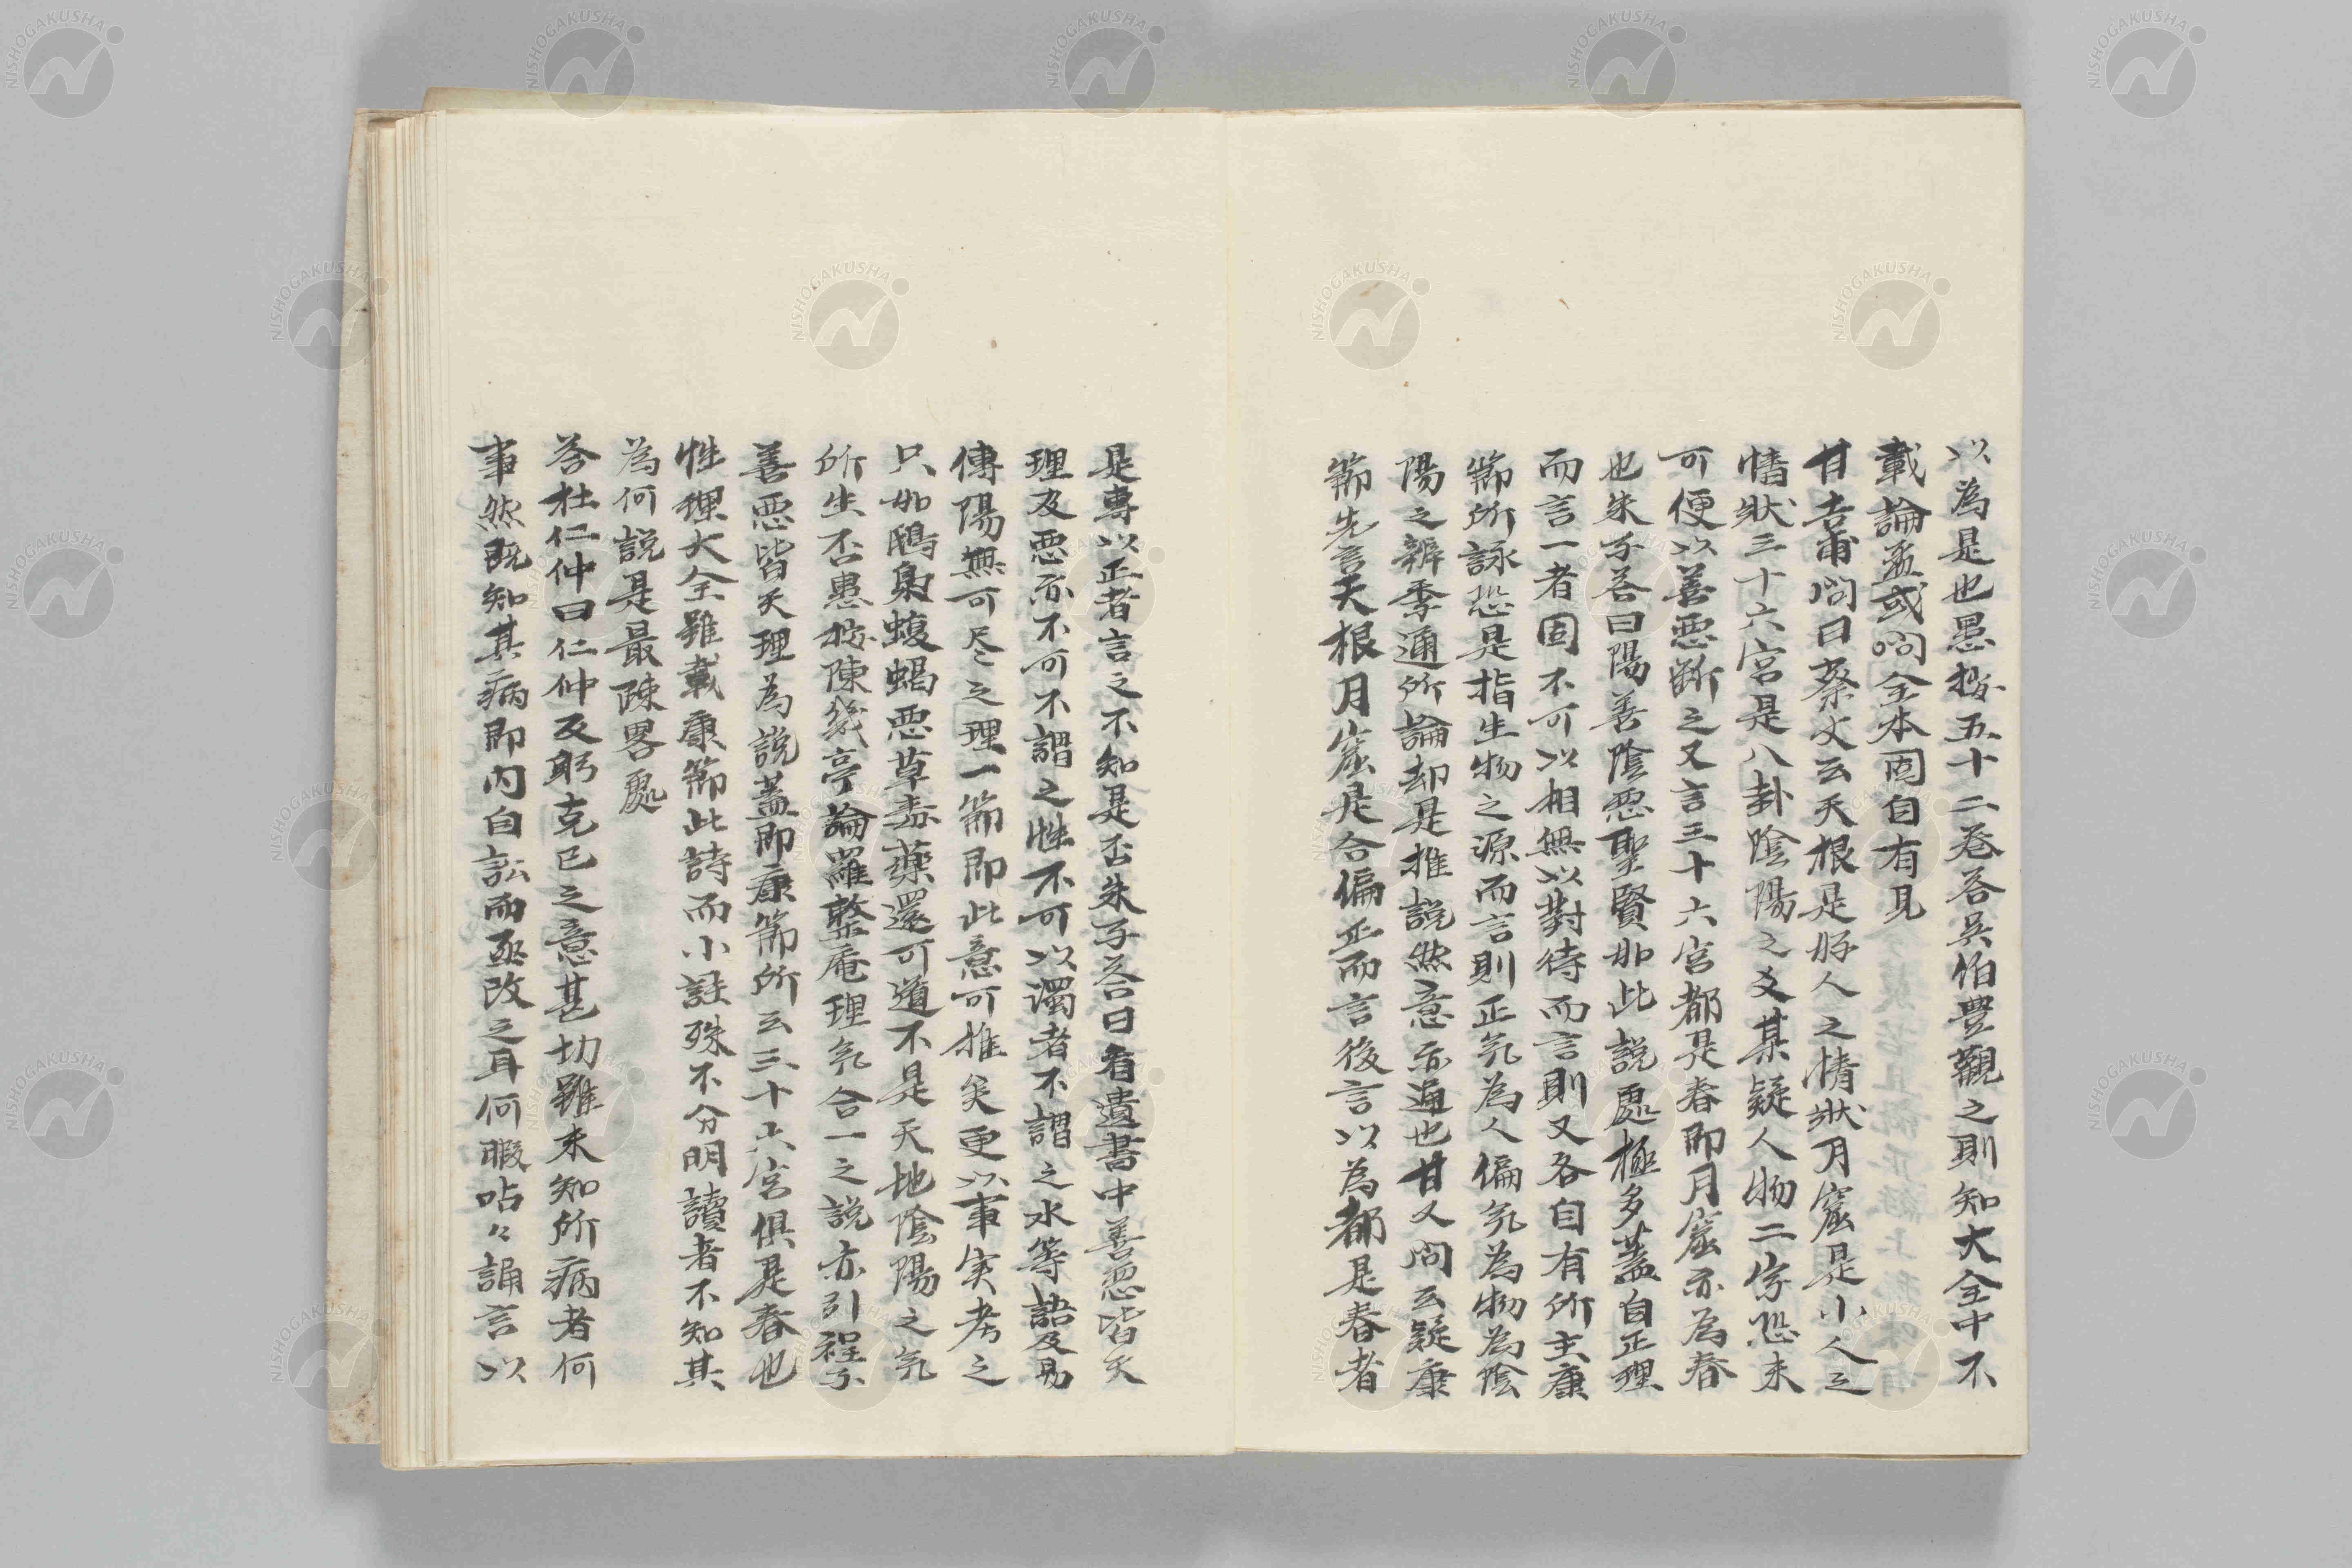 以為是也愚按五十二卷答吳伯豊觀之則知大全中不
載論孟或問全本固自有見
甘吉甫問曰蔡丈云天根是好人之情狀月窟是小人之
情狀三十六宮是八卦陰陽之爻某疑人物二字恐未
可便以善悪断之又言三十六宮都是春即月窟亦為春
也朱子答曰陽善陰悪聖賢如此説處極多蓋自正理
而言一者固不可以相無以對待而言則又各自有所主康
節所詠恐是指生物之源而言則正気為人偏気為物為陰
陽之辨季通所論却是推説然意亦通也甘又問云疑康
節先言天根月窟是合偏正而言後言以為都是春者
是專以正者言之不知是否朱子答曰看遺書中善悪皆天
理及悪亦不可不謂之性不可以濁者不謂之水等語及易
傳陽無可尽之理一節即此意可推矣更以事実考之
只如鴟梟蝮蝎悪草毒藥還可道不是天地陰陽之気
所生否愚按陳幾亭論羅整庵理気合一之説亦引程子
善悪皆天理為説蓋即康節所云三十六宮俱是春也
性理大全雖載康節此詩而小註殊不分明讀者不知其
為何説是最疎畧處
答杜仁仲曰仁仲反躬克已之意甚切雖未知所病者何
事然既知其病即内自訟而亟改之耳何暇呫々誦言以
NISHOGAKUSHA